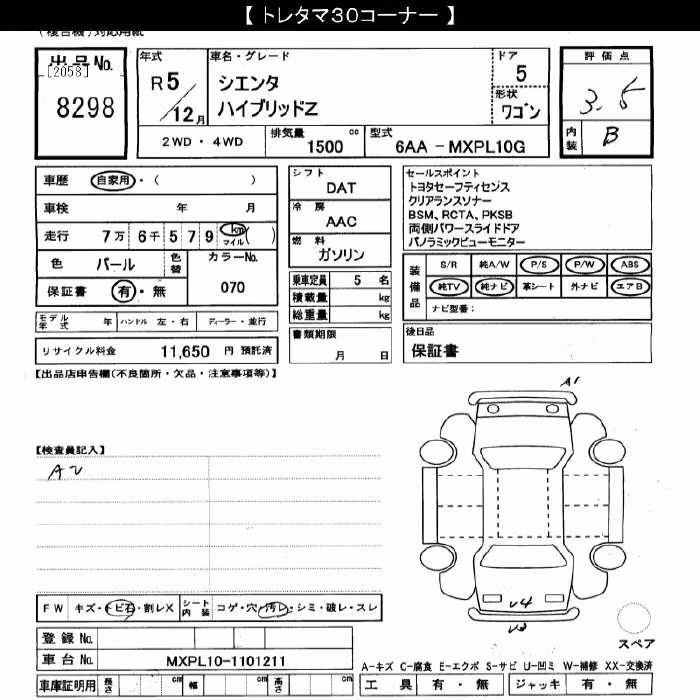 【 トレタマ30コーナー 】
(複合機)対応用紙
出品No.
[2058]
8298
年式
R5/12月
車名・グレード
シエンタ
ハイブリッドZ
ドア
5
形状
ワゴン
評価点
3.5
内装 B
2WD ・ 4WD
排気量 1500 cc
型式 6AA - MXPL10G
車歴 自家用・( )
車検 年 月
走行 7万 6千 5 7 9 km マイル ( )
色 パール 色替 カラーNo. 070
保証書 有・無
シフト
DAT
冷房
AAC
燃料
ガソリン
乗車定員 5 名
積載量 kg
総重量 kg
セールスポイント
トヨタセーフティセンス
クリアランスソナー
BSM、RCTA、PKSB
両側パワースライドドア
パノラミックビューモニター
装備品
S/R 純A/W P/S P/W ABS
純TV 純ナビ 革シート 外ナビ エアB
ナビ型番:
モデル年式 年 ハンドル 左・右 ディーラー・並行
リサイクル料金 11,650 円 預託済
書類期限
月 日
後日品
保証書
【出品店申告欄(不良箇所・欠品・注意事項等)】
A1
【検査員記入】
Aリ
U4
U3
スペア
FW キズ・トビ石・割レX シート内装 コゲ・穴・汚レ・シミ・破レ・スレ
登録No.
車台No. MXPL10-1101211
車庫証明用 長さ cm 幅 cm 高さ cm
A-キズ C-腐食 E-エクボ S-サビ U-凹ミ W-補修 XX-交換済
工具 有・無 ジャッキ 有・無